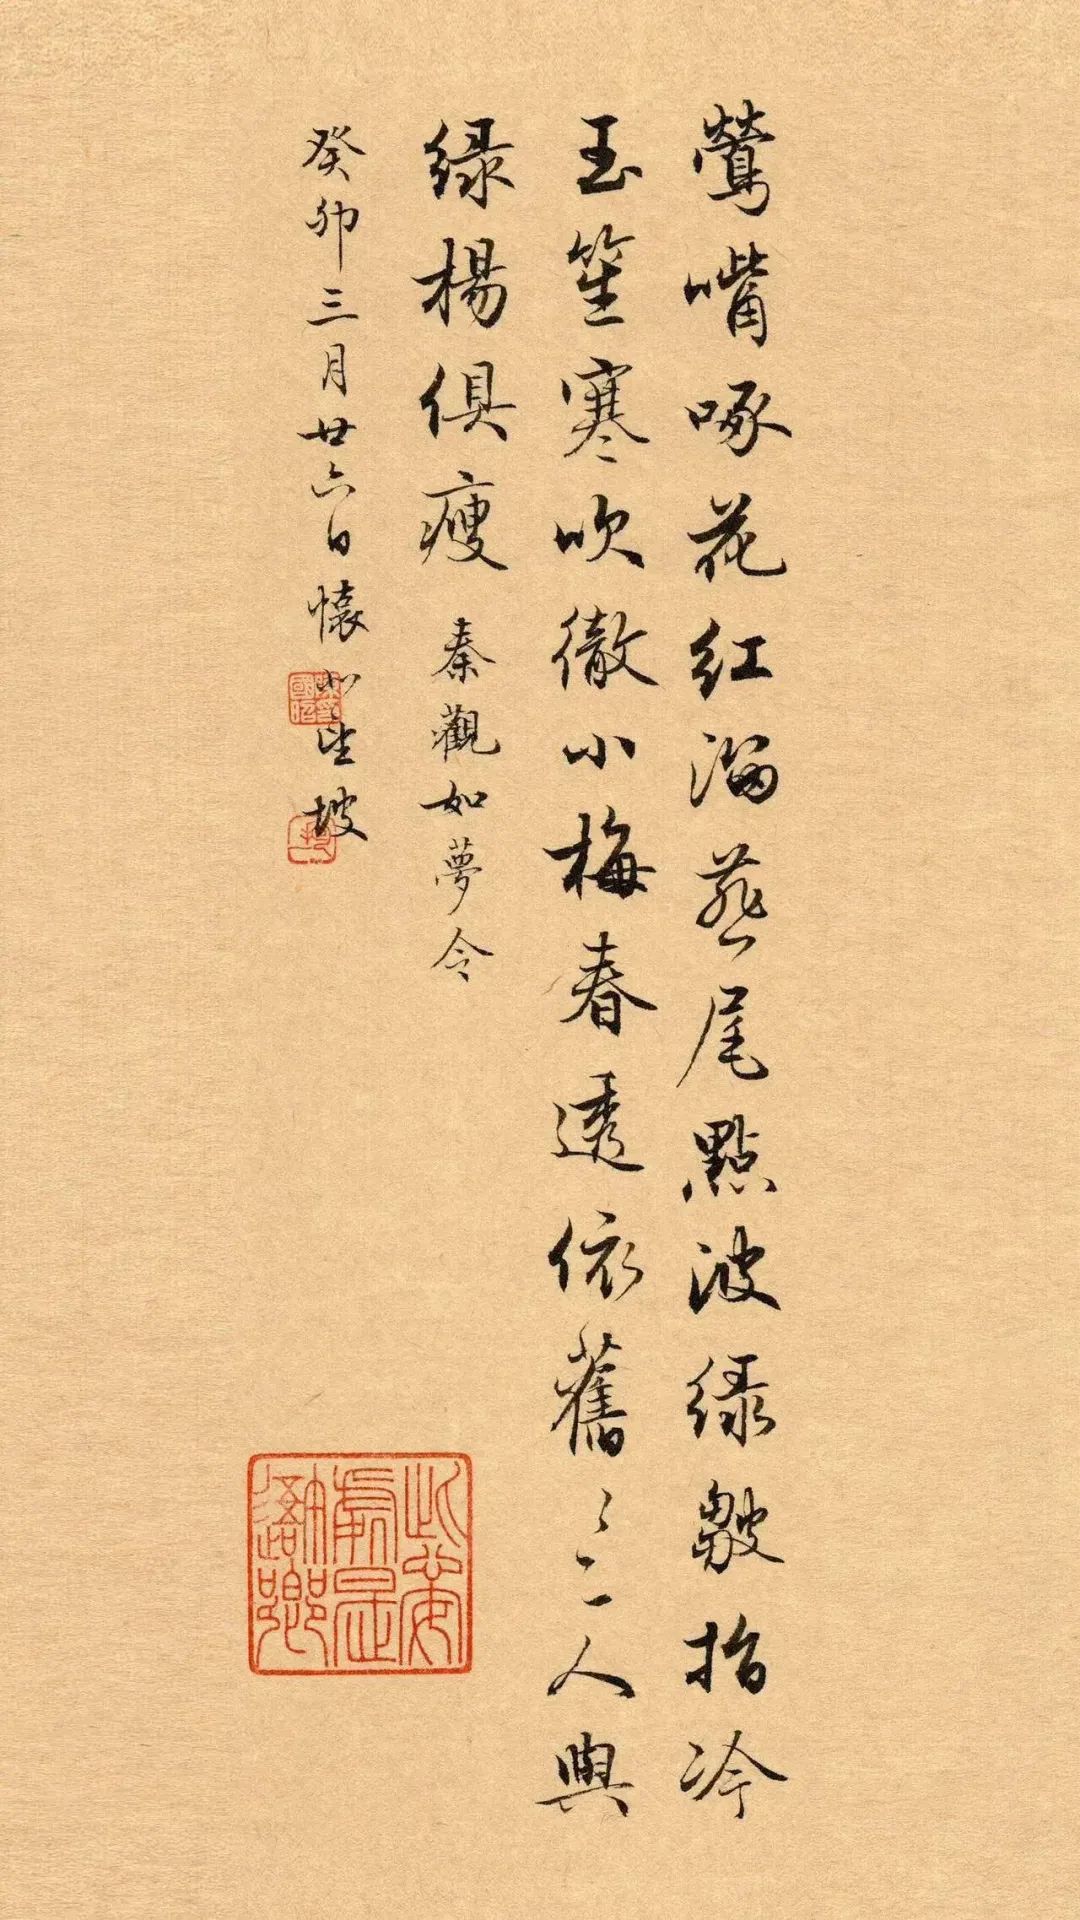 鶯嘴啄花紅溜燕尾點波綠皺指冷
玉笙寒吹徹小梅春透依舊〻〻人與
綠楊俱瘦 秦觀如夢令
癸卯三月廿六日懷坡
此心安處是吾鄉